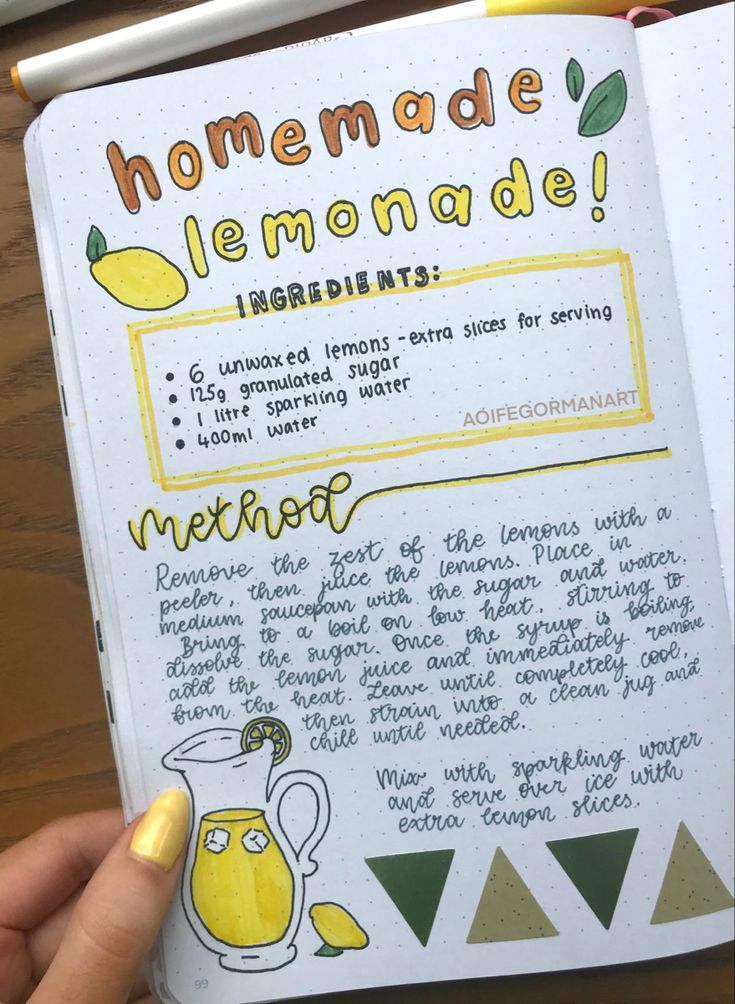 homemade
lemonade!
INGREDIENTS:
• 6 unwaxed lemons - extra slices for serving
• 125g granulated sugar
• 1 litre sparkling water
• 400ml water
AOIFEGORMANART
method
Remove the zest of the lemons with a
peeler, then juice the lemons. Place in
medium saucepan with the sugar and water.
Bring to a boil on low heat, stirring to
dissolve the sugar. Once the syrup is boiling,
add the lemon juice and immediately remove
from the heat. Leave until completely cool,
then strain into a clean jug and
chill until needed.
Mix with sparkling water
and serve over ice with
extra lemon slices.
99